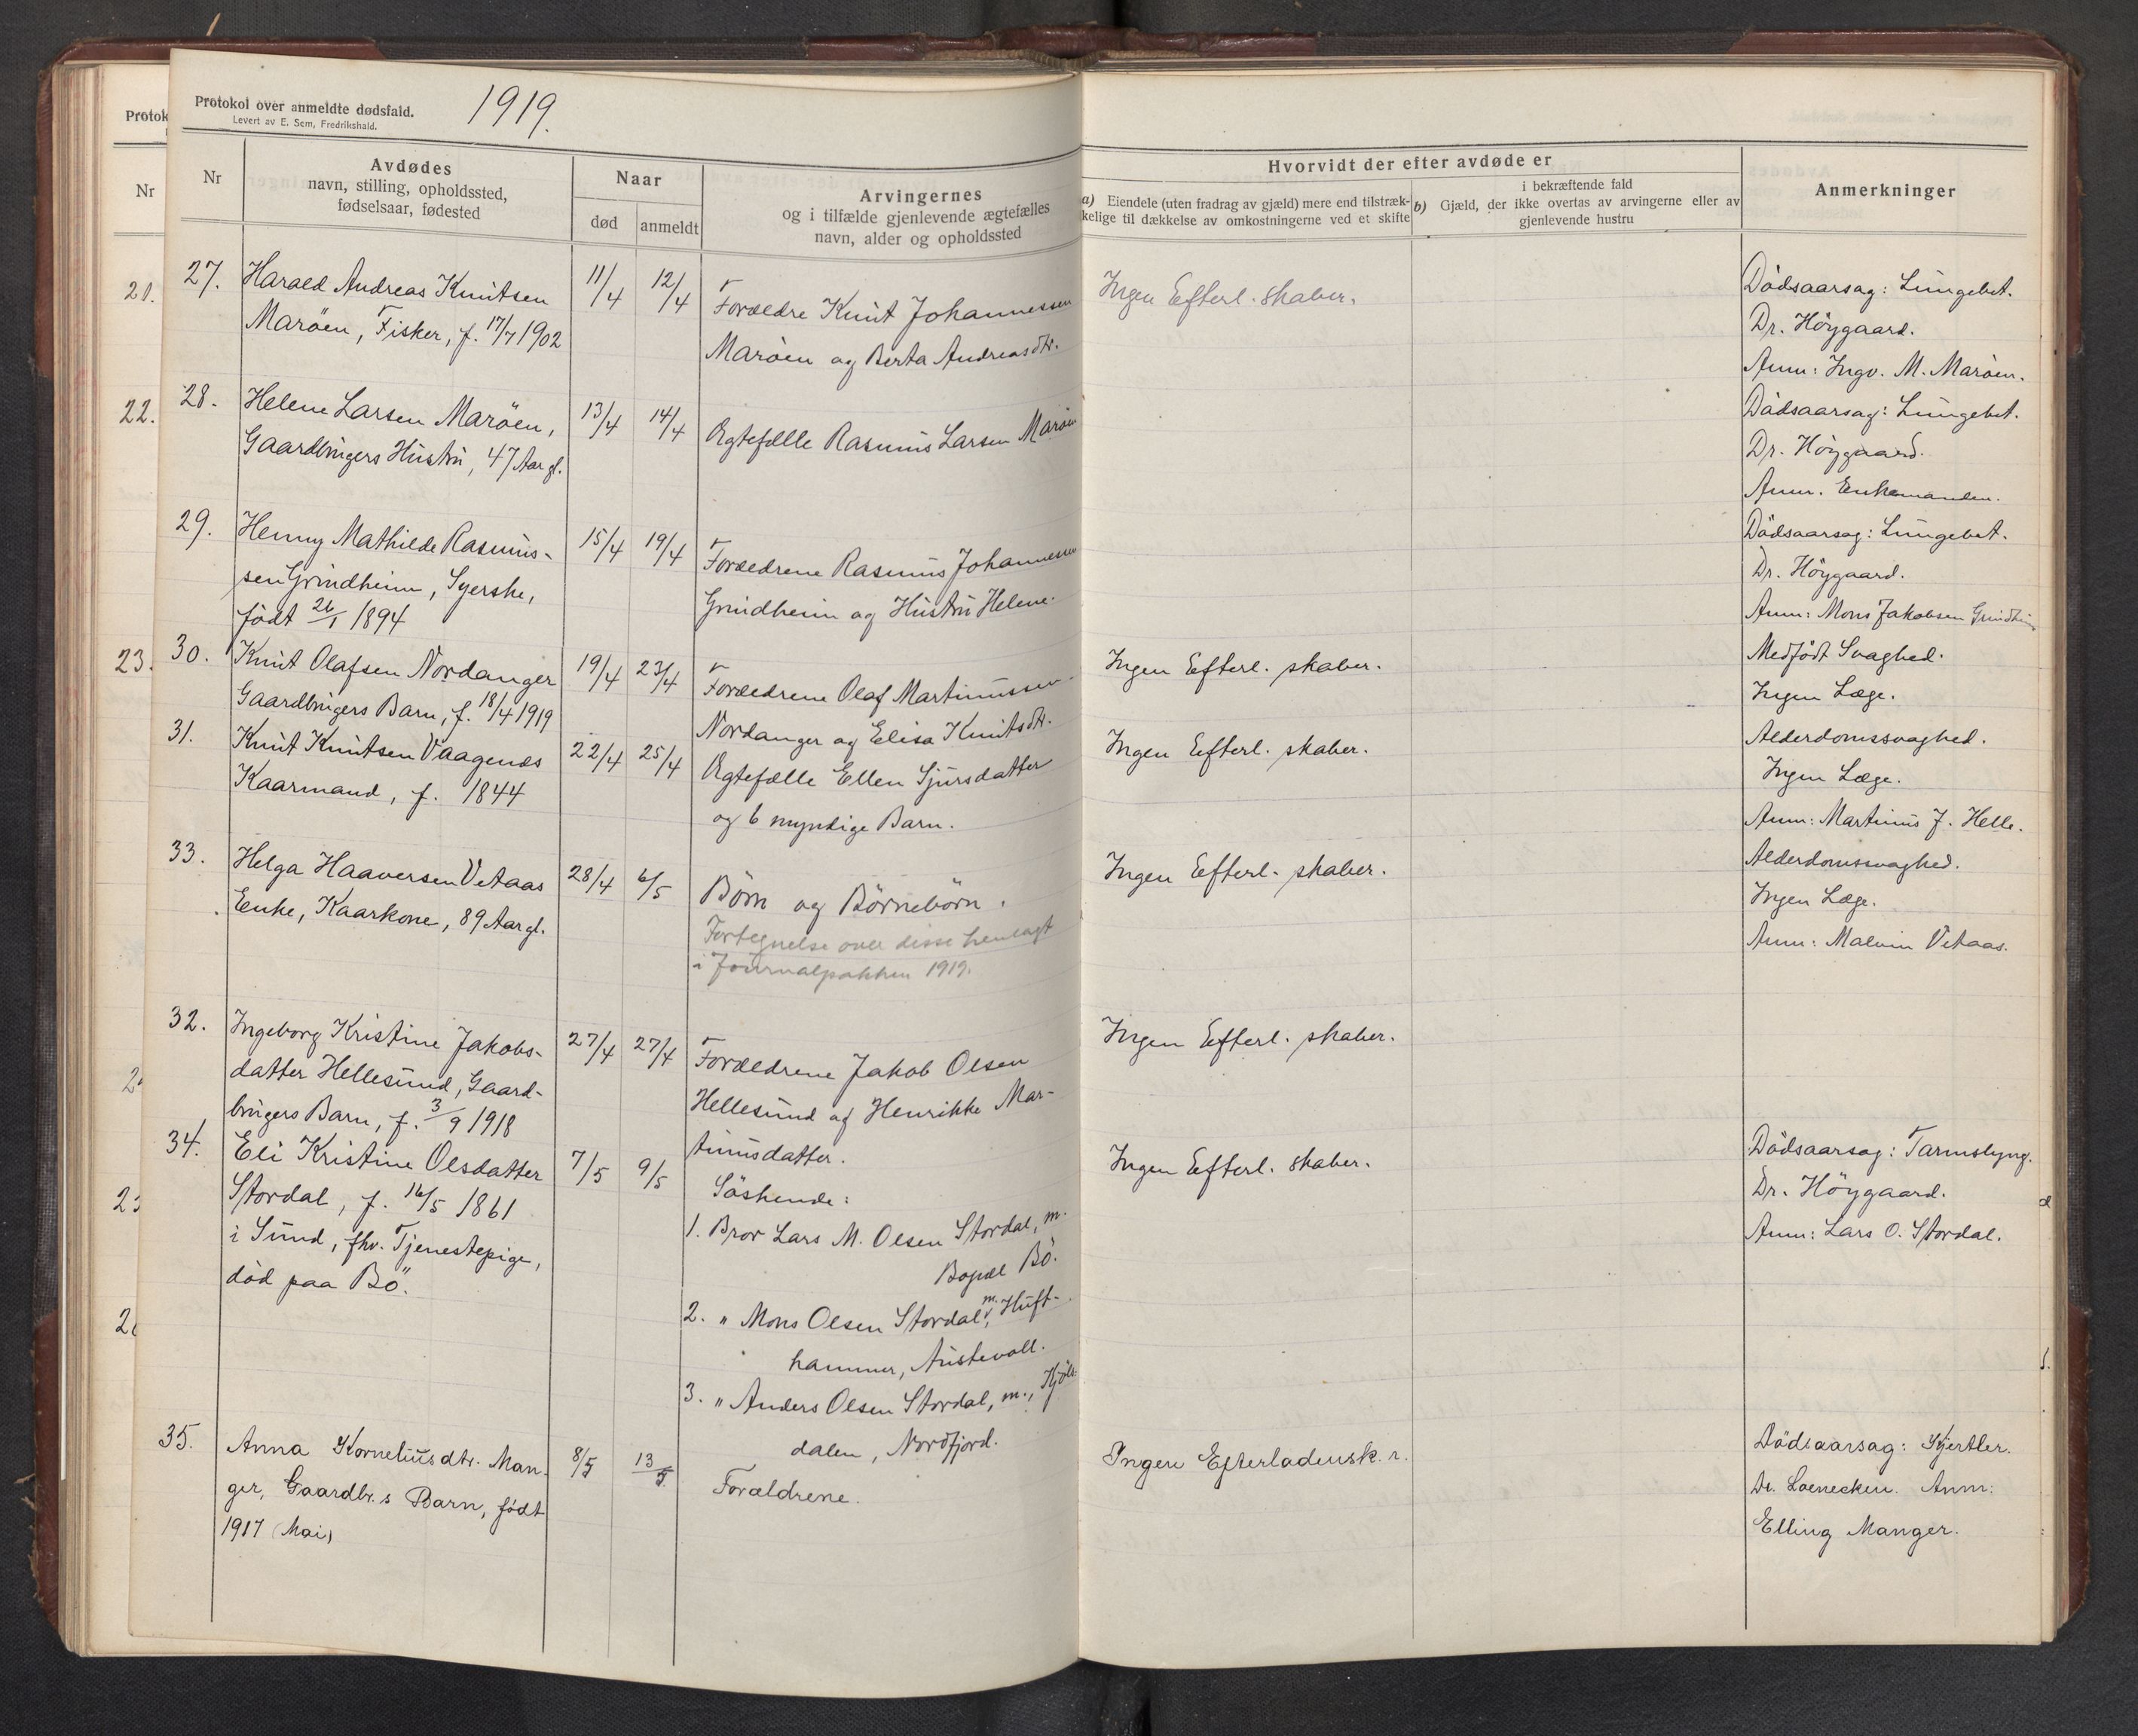 Protokol over anmeldte dødsfald.
Levert av E. Sem, Fredrikshald.
1919.
Nr
Avdødes
navn, stilling, opholdssted,
fødselsaar, fødested
Naar
død
anmeldt
Arvingernes
og i tilfælde gjenlevende ægtefælles
navn, alder og opholdssted
Hvorvidt der efter avdøde er
a) Eiendele (uten fradrag av gjæld) mere end tilstræk-
kelige til dækkelse av omkostningerne ved et skifte
i bekræftende fald
b) Gjæld, der ikke overtas av arvingerne eller av
gjenlevende hustru
Anmerkninger
27.
Harald Andreas Knutsen
Marøen, Fisker, f. 17/7 1902
11/4
12/4
Forældre Knut Johannessen
Marøen og Berta Andreasdtr.
Ingen Efterl. skaber.
Dödsaarsag: Lungebet.
Dr. Höygaard.
Anm: Ingv. M. Marøen.
28.
Helene Larsen Marøen,
Gaardbrugers Hustru, 47 Aar gl.
13/4
14/4
Ægtefælle Rasmus Larsen Marøen
Dødsaarsag: Lungebet.
Dr. Höygaard.
Anm. Enkemanden.
29.
Henny Mathilde Rasmus-
sen Grindheim, Syerske,
født 26/1 1894
15/4
19/4
Forældrene Rasmus Johannessen
Grindheim og Hustru Helene.
Dödsaarsag: Lungebet.
Dr. Höygaard.
Anm: Mons Jakobsen Grindheim
30.
Knut Olafsen Nordanger
Gaardbrugers Barn, f. 18/4 1919
19/4
23/4
Forældrene Olaf Martinussen
Nordanger og Elisa Knutsdtr.
Ingen Efterl. skaber.
Medfödt Svaghed.
Ingen Læge.
31.
Knut Knutsen Vaagenes
Kaarmand, f. 1844
22/4
25/4
Ægtefælle Ellen Sjursdatter
og 6 myndige Barn.
Ingen Efterl. skaber.
Alderdomssvaghed.
Ingen Læge.
Anm: Martinus J. Helle.
33.
Helga Haaversen Vetaas
Enke, Kaarkone, 89 Aar gl.
28/4
6/5
Börn og Börnebörn.
Fortegnelse over disse henlagt
i Journalpakken 1919.
Ingen Efterl. skaber.
Alderdomssvaghed.
Ingen Læge.
Anm: Malvin Vetaas.
32.
Ingeborg Kristine Jakobs-
datter Hellesund, Gaard-
brugers Barn, f. 3/9 1918
27/4
27/4
Forældrene Jakob Olsen
Hellesund og Henrikke Mar-
tinusdatter.
Ingen Efterl. skaber.
34.
Eli Kristine Olsdatter
Stordal, f. 16/5 1861
i Sund, fhv. Tjenestepige,
död paa Bö.
7/5
9/5
Söskende:
1. Bror Lars M. Olsen Stordal, m.
Bopæl Bö.
2. " Mons Olsen Stordal, m. Huft-
hammer, Austevoll.
3. " Anders Olsen Stordal, m.,
dalen, Nordfjord.
Ingen Efterl. skaber.
Dödsaarsag: Tarmslyng.
Dr. Höygaard.
Anm: Lars O. Stordal.
35.
Anna Korneliusdtr. Man-
ger, Gaardbr.s Barn, født
1917 (Mai)
8/5
13/5
Forældrene.
Ingen Efterladensk. r.
Dödsaarsag: Kjertler.
Dr. Loenecken. Anm:
Elling Manger.
Protok
Nr
22.
23.